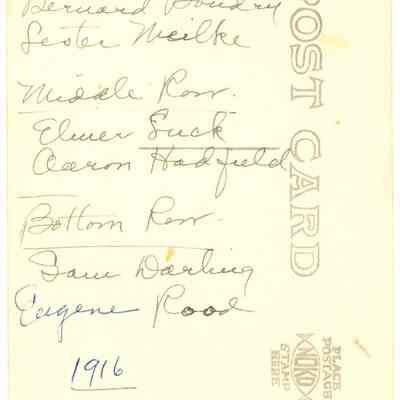 Bernard Boudry
Lester Meilke
Middle Row.
Elmer Suck
Aaron Hadfield
Bottom Row.
Sam Darling
Eugene Rood
1916
POST CARD
PLACE
POSTAGE
NOKO
STAMP
HERE